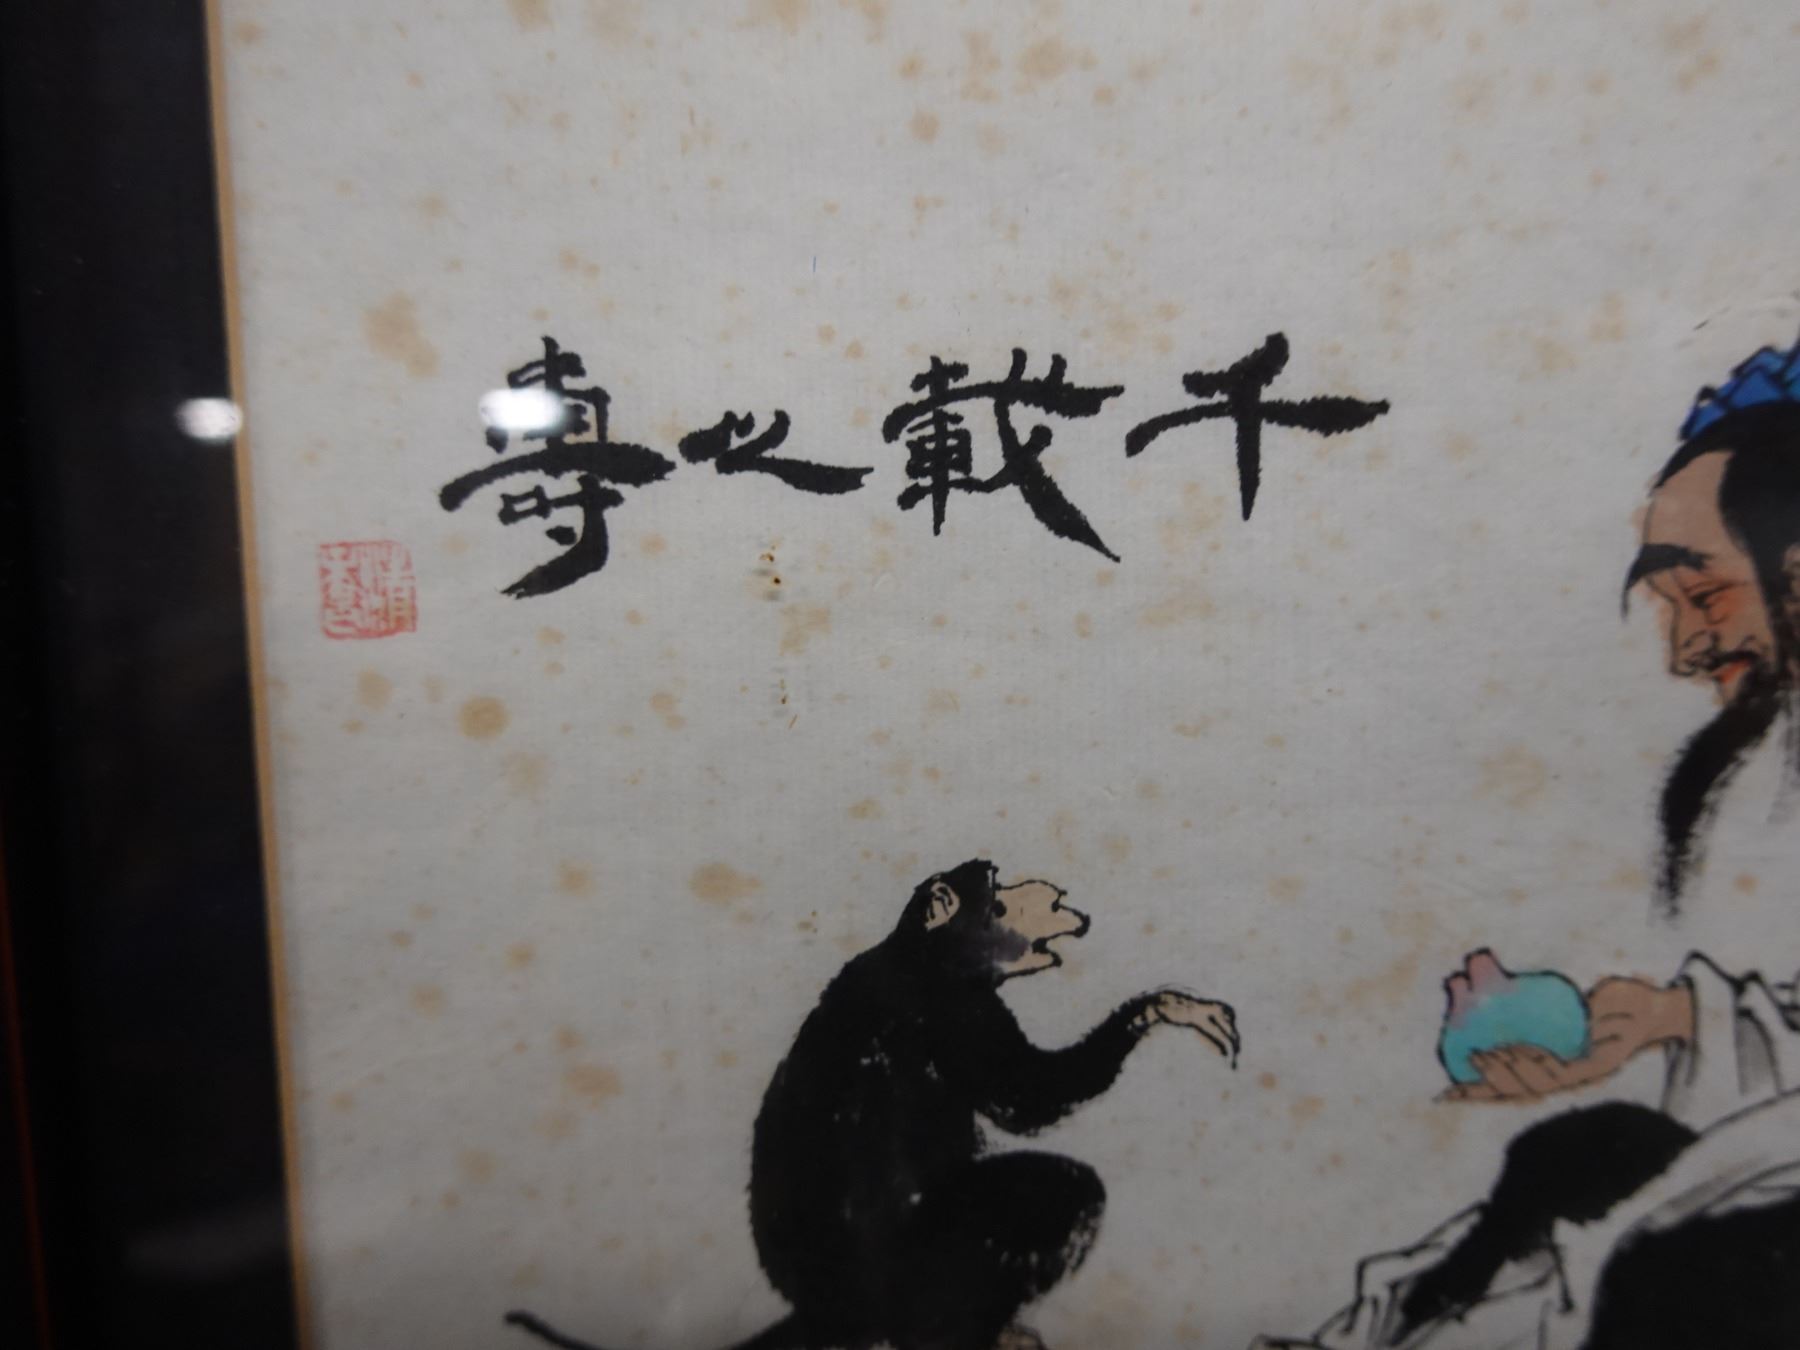 千載之壽